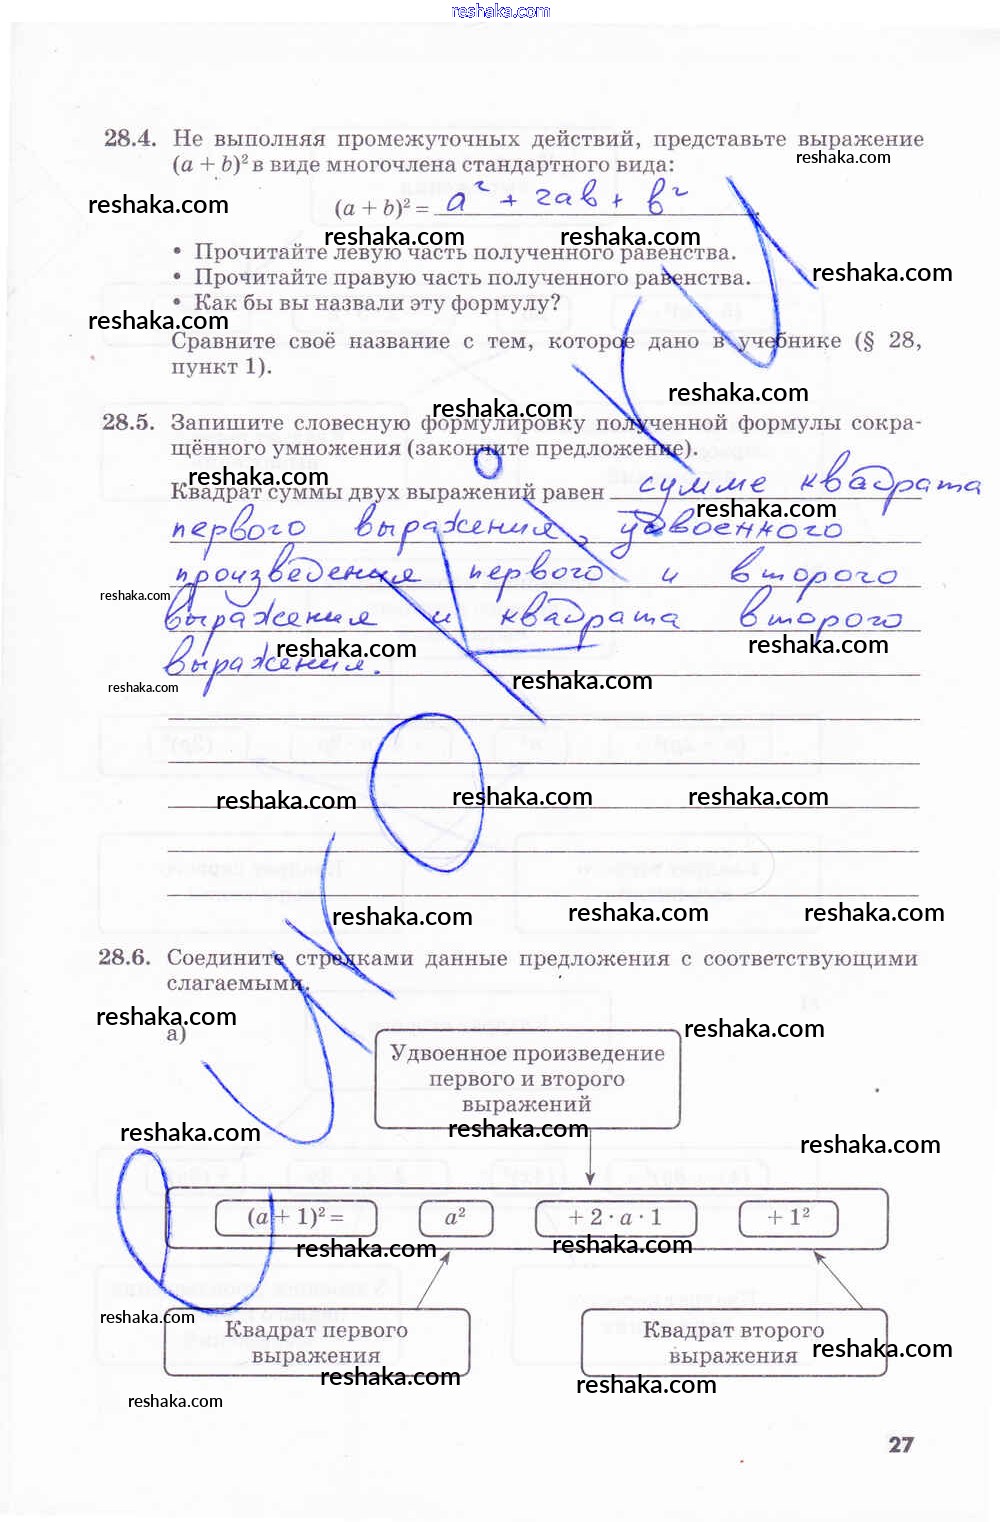 reshaka.com
28.4. Не выполняя промежуточных действий, представьте выражение
reshaka.com
(a + b)² в виде многочлена стандартного вида:
reshaka.com
(a + b)² = a² + 2ab + b².
reshaka.com reshaka.com
• Прочитайте левую часть полученного равенства.
• Прочитайте правую часть полученного равенства.
reshaka.com
• Как бы вы назвали эту формулу?
reshaka.com
Сравните своё название с тем, которое дано в учебнике (§ 28,
пункт 1).
reshaka.com
reshaka.com
28.5. Запишите словесную формулировку полученной формулы сокра-
щённого умножения (закончите предложение).
reshaka.com
Квадрат суммы двух выражений равен сумме квадрата
reshaka.com
первого выражения, удвоенного
произведения первого и второго
reshaka.com
выражения и квадрата второго
reshaka.com reshaka.com
выражения.
reshaka.com reshaka.com
reshaka.com reshaka.com reshaka.com
reshaka.com reshaka.com reshaka.com
28.6. Соедините стрелками данные предложения с соответствующими
слагаемыми.
reshaka.com reshaka.com
а)
Удвоенное произведение
первого и второго
выражений
reshaka.com reshaka.com reshaka.com
(a + 1)² = a² + 2 · a · 1 + 1²
reshaka.com reshaka.com
reshaka.com
Квадрат первого
выражения
Квадрат второго
выражения
reshaka.com
reshaka.com reshaka.com
reshaka.com
27